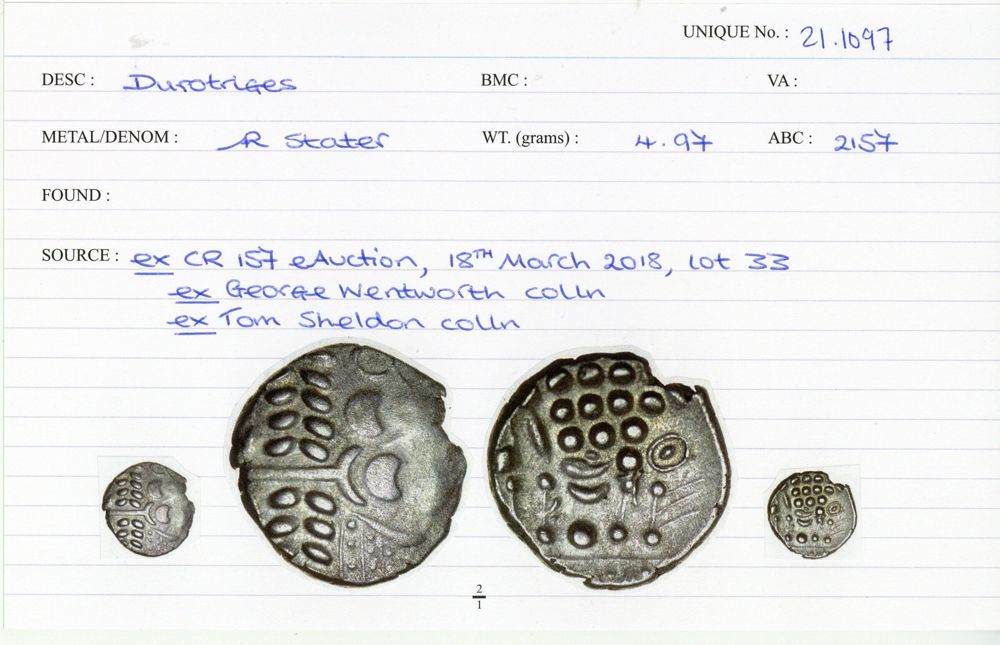 UNIQUE No. : 21.1097
DESC : Durotriges BMC : VA :
METAL/DENOM : AR Stater WT. (grams) : 4.97 ABC : 2157
FOUND :
SOURCE : ex CR 157 eAuction, 18TH March 2018, lot 33
ex George Wentworth colln
ex Tom Sheldon colln
2
1